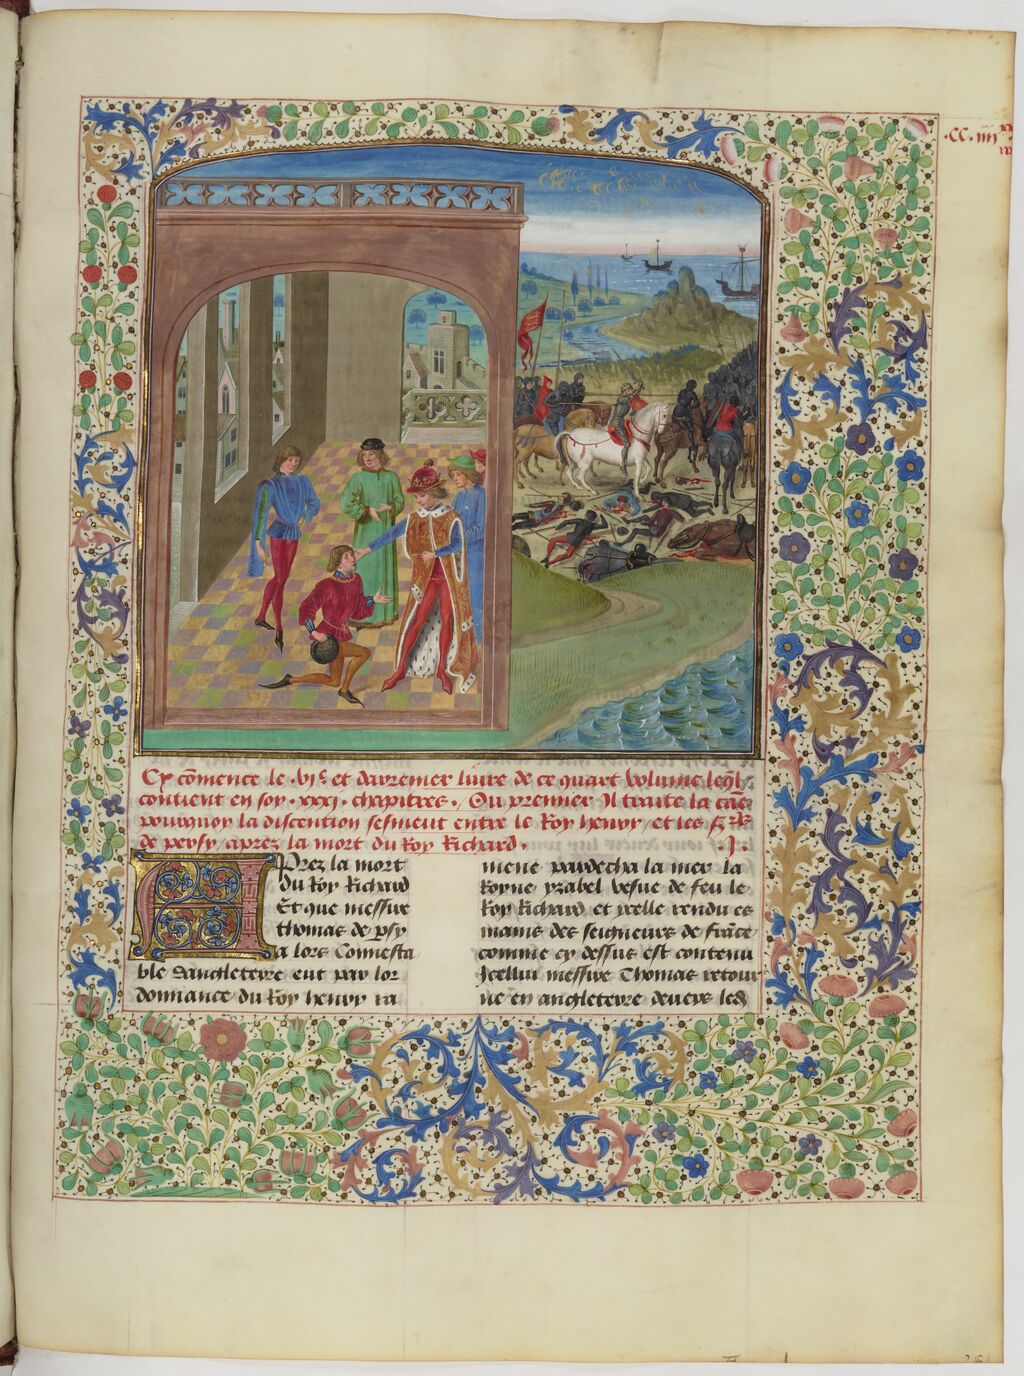 .CC. iiii
xx
xx
Cy cōmence le .vi.e et derrenier livre de ce quart volume leql̄
contient en soy .xxxi. chapitres. Ou premier Il traite la cāē
pourquoy la discention sesmeut entre le Roy henry, et les
de persy, apres la mort du Roy Richard. .J.
APrez la mort
du Roy Richard
Et que messire
thomas de psy
a lors Connesta
ble dangleterre eut par lor
donnance du Roy henry ra
mene pardecha la mer la
Royne ysabel vesue de feu le
Roy Richard, et icelle rendu es
mains des seigneurs de frāce
comme cy dessus est contenu
Icellui messire Thomas retour
ne en angleterre devers led